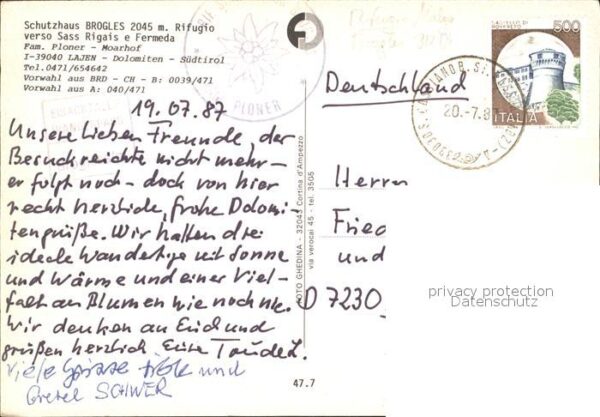 Schutzhaus BROGLES 2045 m. Rifugio
verso Sass Rigais e Fermeda
Fam. Ploner - Moarhof
I-39040 LAJEN - Dolomiten - Südtirol
Tel.0471/654642
Vorwahl aus BRD - CH - B: 0039/471
Vorwahl aus A: 040/471
PLONER
19.07.87
Unsere lieben Freunde, der
Besuch reichte nicht mehr -
er folgt noch - doch von hier
recht herzliche, frohe Dolomi-
tengrüße. Wir hatten drei
ideale Wandertage mit Sonne
und Wärme und einer Viel-
falt an Blumen wie noch nie.
Wir denken an Euch und
grüßen herzlich Eure Traudel.
Viele Grüsse und
Gretel SCHWER
FOTO GHEDINA - 32043 Cortina d'Ampezzo
via verocai 45 - tel. 3505
47.7
CASTELLO DI
ROVERETO
500
ITALIA
20.-7.8
Deutschland
Herrn
Fried
und
D 7230
privacy protection
Datenschutz